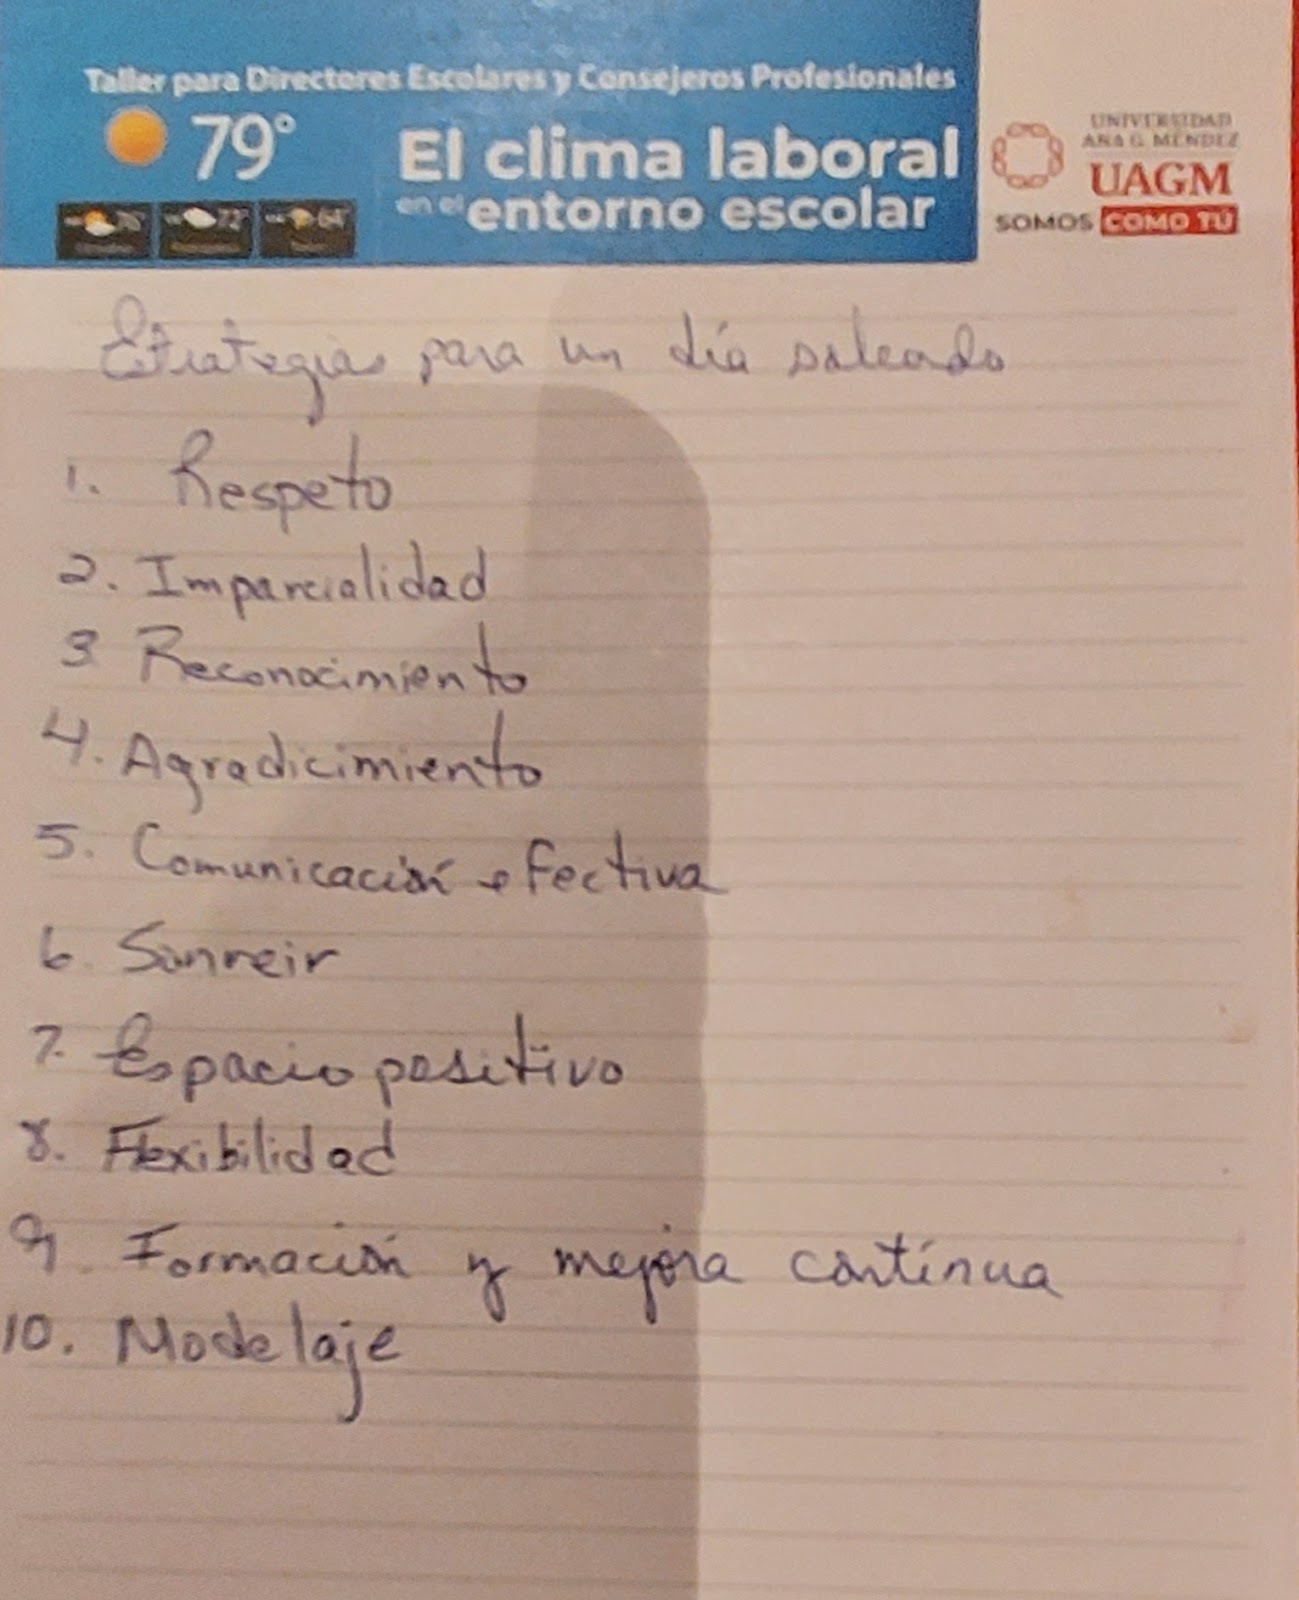 Taller para Directores Escolares y Consejeros Profesionales
79°
El clima laboral
en el entorno escolar
76° 72° 64°
UNIVERSIDAD
ANA G. MÉNDEZ
UAGM
SOMOS COMO TÚ
Estrategias para un día soleado
1. Respeto
2. Imparcialidad
3 Reconocimiento
4. Agradicimiento
5. Comunicación efectiva
6 Sonreir
7. Espacio positivo
8. Flexibilidad
9. Formación y mejora contínua
10. Modelaje